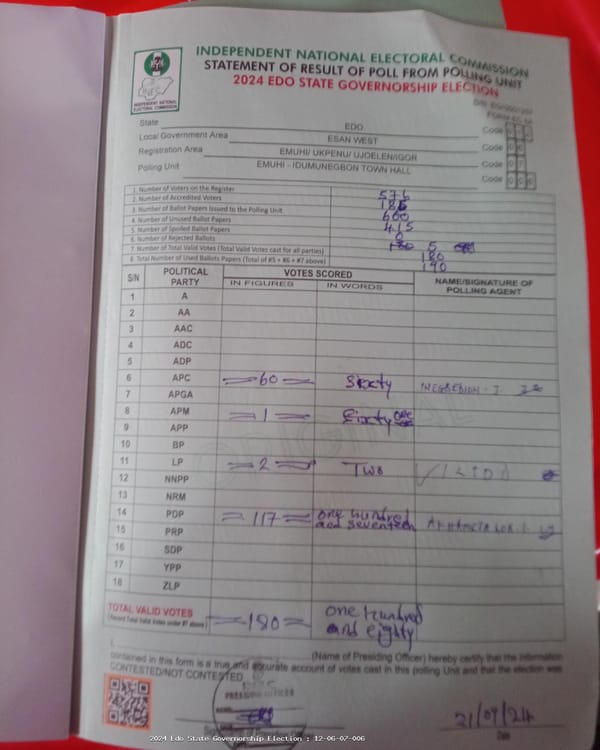 INDEPENDENT NATIONAL ELECTORAL COMMISSION
STATEMENT OF RESULT OF POLL FROM POLLING UNIT
2024 EDO STATE GOVERNORSHIP ELECTION
INEC
INDEPENDENT NATIONAL
ELECTORAL COMMISSION
State EDO Code
Local Government Area ESAN WEST Code
Registration Area EMUHI/ UKPENU/ UJOELEN/IGOR Code
Polling Unit EMUHI - IDUMUNEGBON TOWN HALL Code
1. Number of Voters on the Register 576
2. Number of Accredited Voters 185
3. Number of Ballot Papers Issued to the Polling Unit 600
4. Number of Unused Ballot Papers 415
5. Number of Spoiled Ballot Papers 0
6. Number of Rejected Ballots 180 5
7. Number of Total Valid Votes (Total Valid Votes cast for all parties) 180
8. Total Number of Used Ballots Papers (Total of #5 + #6 + #7 above) 190
S/N POLITICAL PARTY VOTES SCORED NAME/SIGNATURE OF POLLING AGENT
IN FIGURES IN WORDS
1 A
2 AA
3 AAC
4 ADC
5 ADP
6 APC 60 Sixty
7 APGA
8 APM 1 Sixty one
9 APP
10 BP
11 LP 2 Two
12 NNPP
13 NRM
14 PDP 117 one hundred and seventeen
15 PRP
16 SDP
17 YPP
18 ZLP
TOTAL VALID VOTES 180 one hundred and eighty
(Record Total Valid Votes under #7 above)
I, (Name of Presiding Officer) hereby certify that the information
contained in this form is a true and accurate account of votes cast in this polling Unit and that the election was
CONTESTED/NOT CONTESTED
PRESIDING OFFICER
21/09/24
Date
2024 Edo State Governorship Election : 12-06-07-006